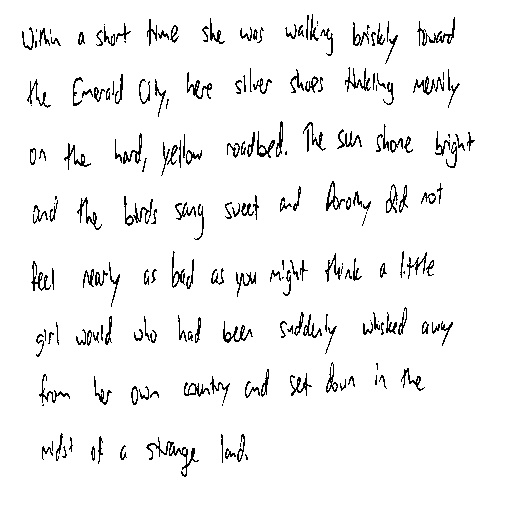 Within a short time she was walking briskly toward
the Emerald City, here silver shoes tinkling merrily
on the hard, yellow roadbed. The sun shone bright
and the birds sang sweet and Dorothy did not
feel nearly as bad as you might think a little
girl would who had been suddenly whisked away
from her own country and set down in the
midst of a strange land.